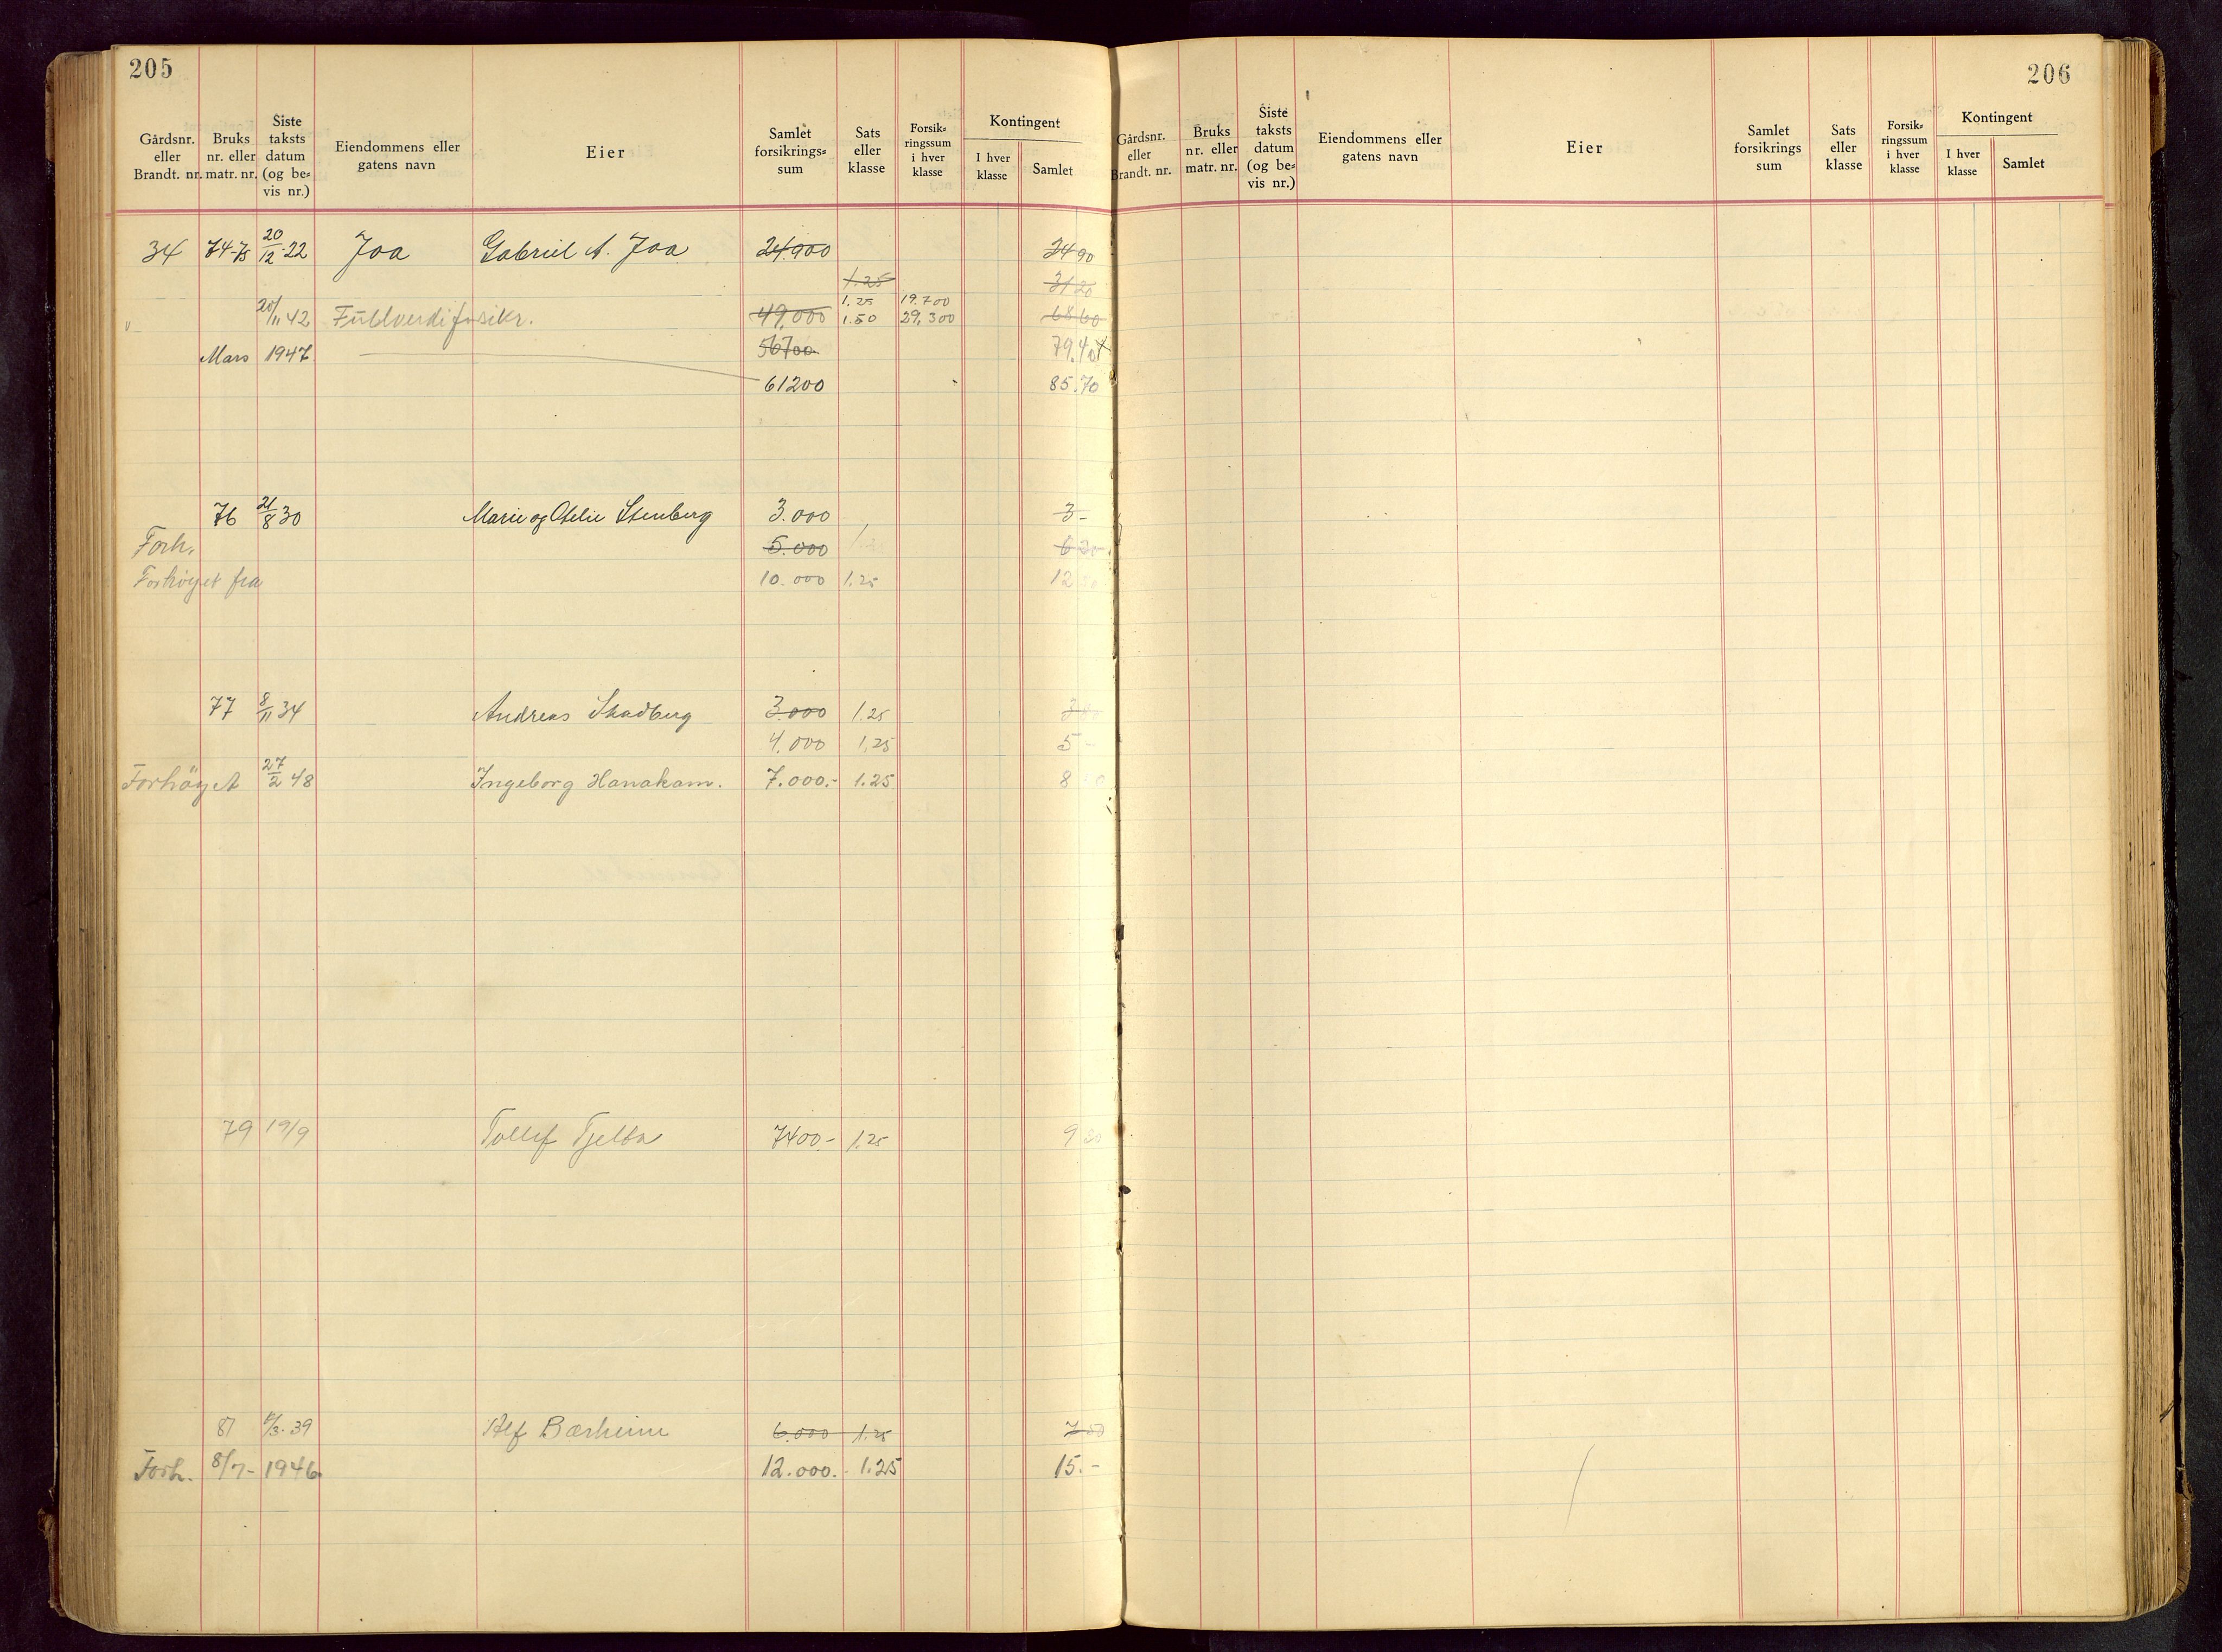 205
Gårdsnr. eller Brandt. nr. Bruks nr. eller matr. nr. Siste taksts datum (og bevis nr.) Eiendommens eller gatens navn Eier Samlet forsikrings-sum Sats eller klasse Forsik-ringssum i hver klasse Kontingent I hver klasse Samlet
34 74-75 20/12-22 Joa Gabriel A. Joa 24.900 34 90
1.25 31 20
1.25 19.700
" 20/11 42 Fullverdiforsikr. 49,000 1.50 29,300 68 60
Mars 1947 56700 79.40
61200 85.70
76 21/8 30 Marie og Otelie Stenberg 3.000 3-
Forh. 5.000
Forhöyet fra 10.000 1.25 12
77 8/11 34 Andreas Skadberg 3.000 1.25
4.000 1,25 5-
Forhöyet 27/2 48 Ingeborg Hanakam. 7.000.- 1.25 8
79 19/9 Tollef Tjelta 7400.- 1.25 9
81 /3.39 Alf Bærheim 6.000 1.25 7 50
Forh. 8/7- 1946 12.000.- 1.25 15.-
206
Gårdsnr. eller Brandt. nr. Bruks nr. eller matr. nr. Siste taksts datum (og bevis nr.) Eiendommens eller gatens navn Eier Samlet forsikrings sum Sats eller klasse Forsik-ringssum i hver klasse Kontingent I hver klasse Samlet